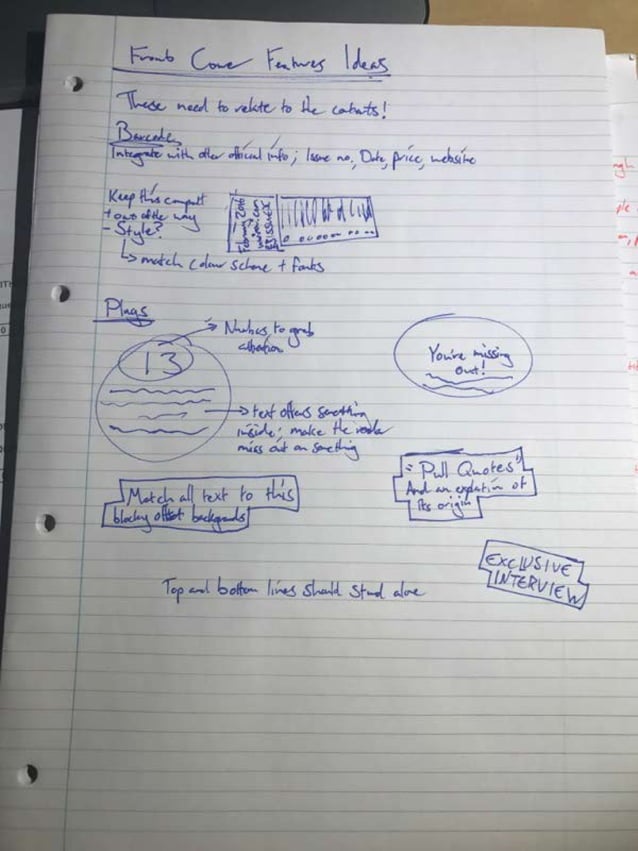 Front Cover Features Ideas
These need to relate to the contents!
Barcode
Integrate with other official info; Issue no, Date, price, website
Keep this compact
+ out of the way
- Style?
February 2016
↳ match colour scheme + fonts
Plugs
→ Numbers to grab
attention
13
You're missing
out!
→ text offers something
inside; make the reader
miss out on something
"Pull Quotes"
And an explanation of
its origin
Match all text to this
blocky offset backgrounds
EXCLUSIVE
INTERVIEW
Top and bottom lines should stand alone